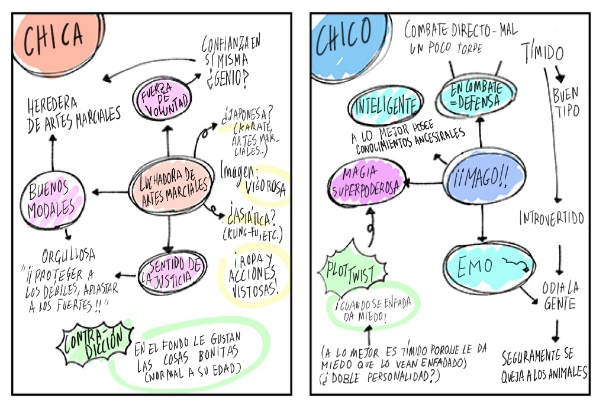 CHICA
CONFIANZA EN
SÍ MISMA
¿GENIO?
FUERZA
DE
VOLUNTAD
HEREDERA
DE ARTES MARCIALES
¿JAPONESA?
(KARATE,
ARTES MAR-
CIALES..)
LUCHADORA DE
ARTES MARCIALES
Imagen:
VIGOROSA
BUENOS
MODALES
¿ASIÁTICA?
(KUNG-FU, ETC.)
ORGULLOSA
"¡¡PROTEGER A
LOS DÉBILES, APLASTAR
A LOS FUERTES!!"
SENTIDO DE
LA JUSTICIA
¡ROPA Y
ACCIONES
VISTOSAS!
CONTRA-
DICCIÓN
EN EL FONDO LE GUSTAN
LAS COSAS BONITAS
(NORMAL A SU EDAD)
CHICO
COMBATE DIRECTO-MAL
UN POCO TORPE
TÍMIDO
INTELIGENTE
EN COMBATE
=DEFENSA
BUEN
TIPO
A LO MEJOR POSEE
CONOCIMIENTOS ANCESTRALES
MAGIA
SUPERPODEROSA
¡¡MAGO!!
INTROVERTIDO
PLOT
TWIST
EMO
ODIA LA
GENTE
¡CUANDO SE ENFADA
DA MIEDO!
(A LO MEJOR ES TÍMIDO PORQUE LE DA
MIEDO QUE LO VEAN ENFADADO)
(¿DOBLE PERSONALIDAD?)
SEGURAMENTE SE
QUEJA A LOS ANIMALES